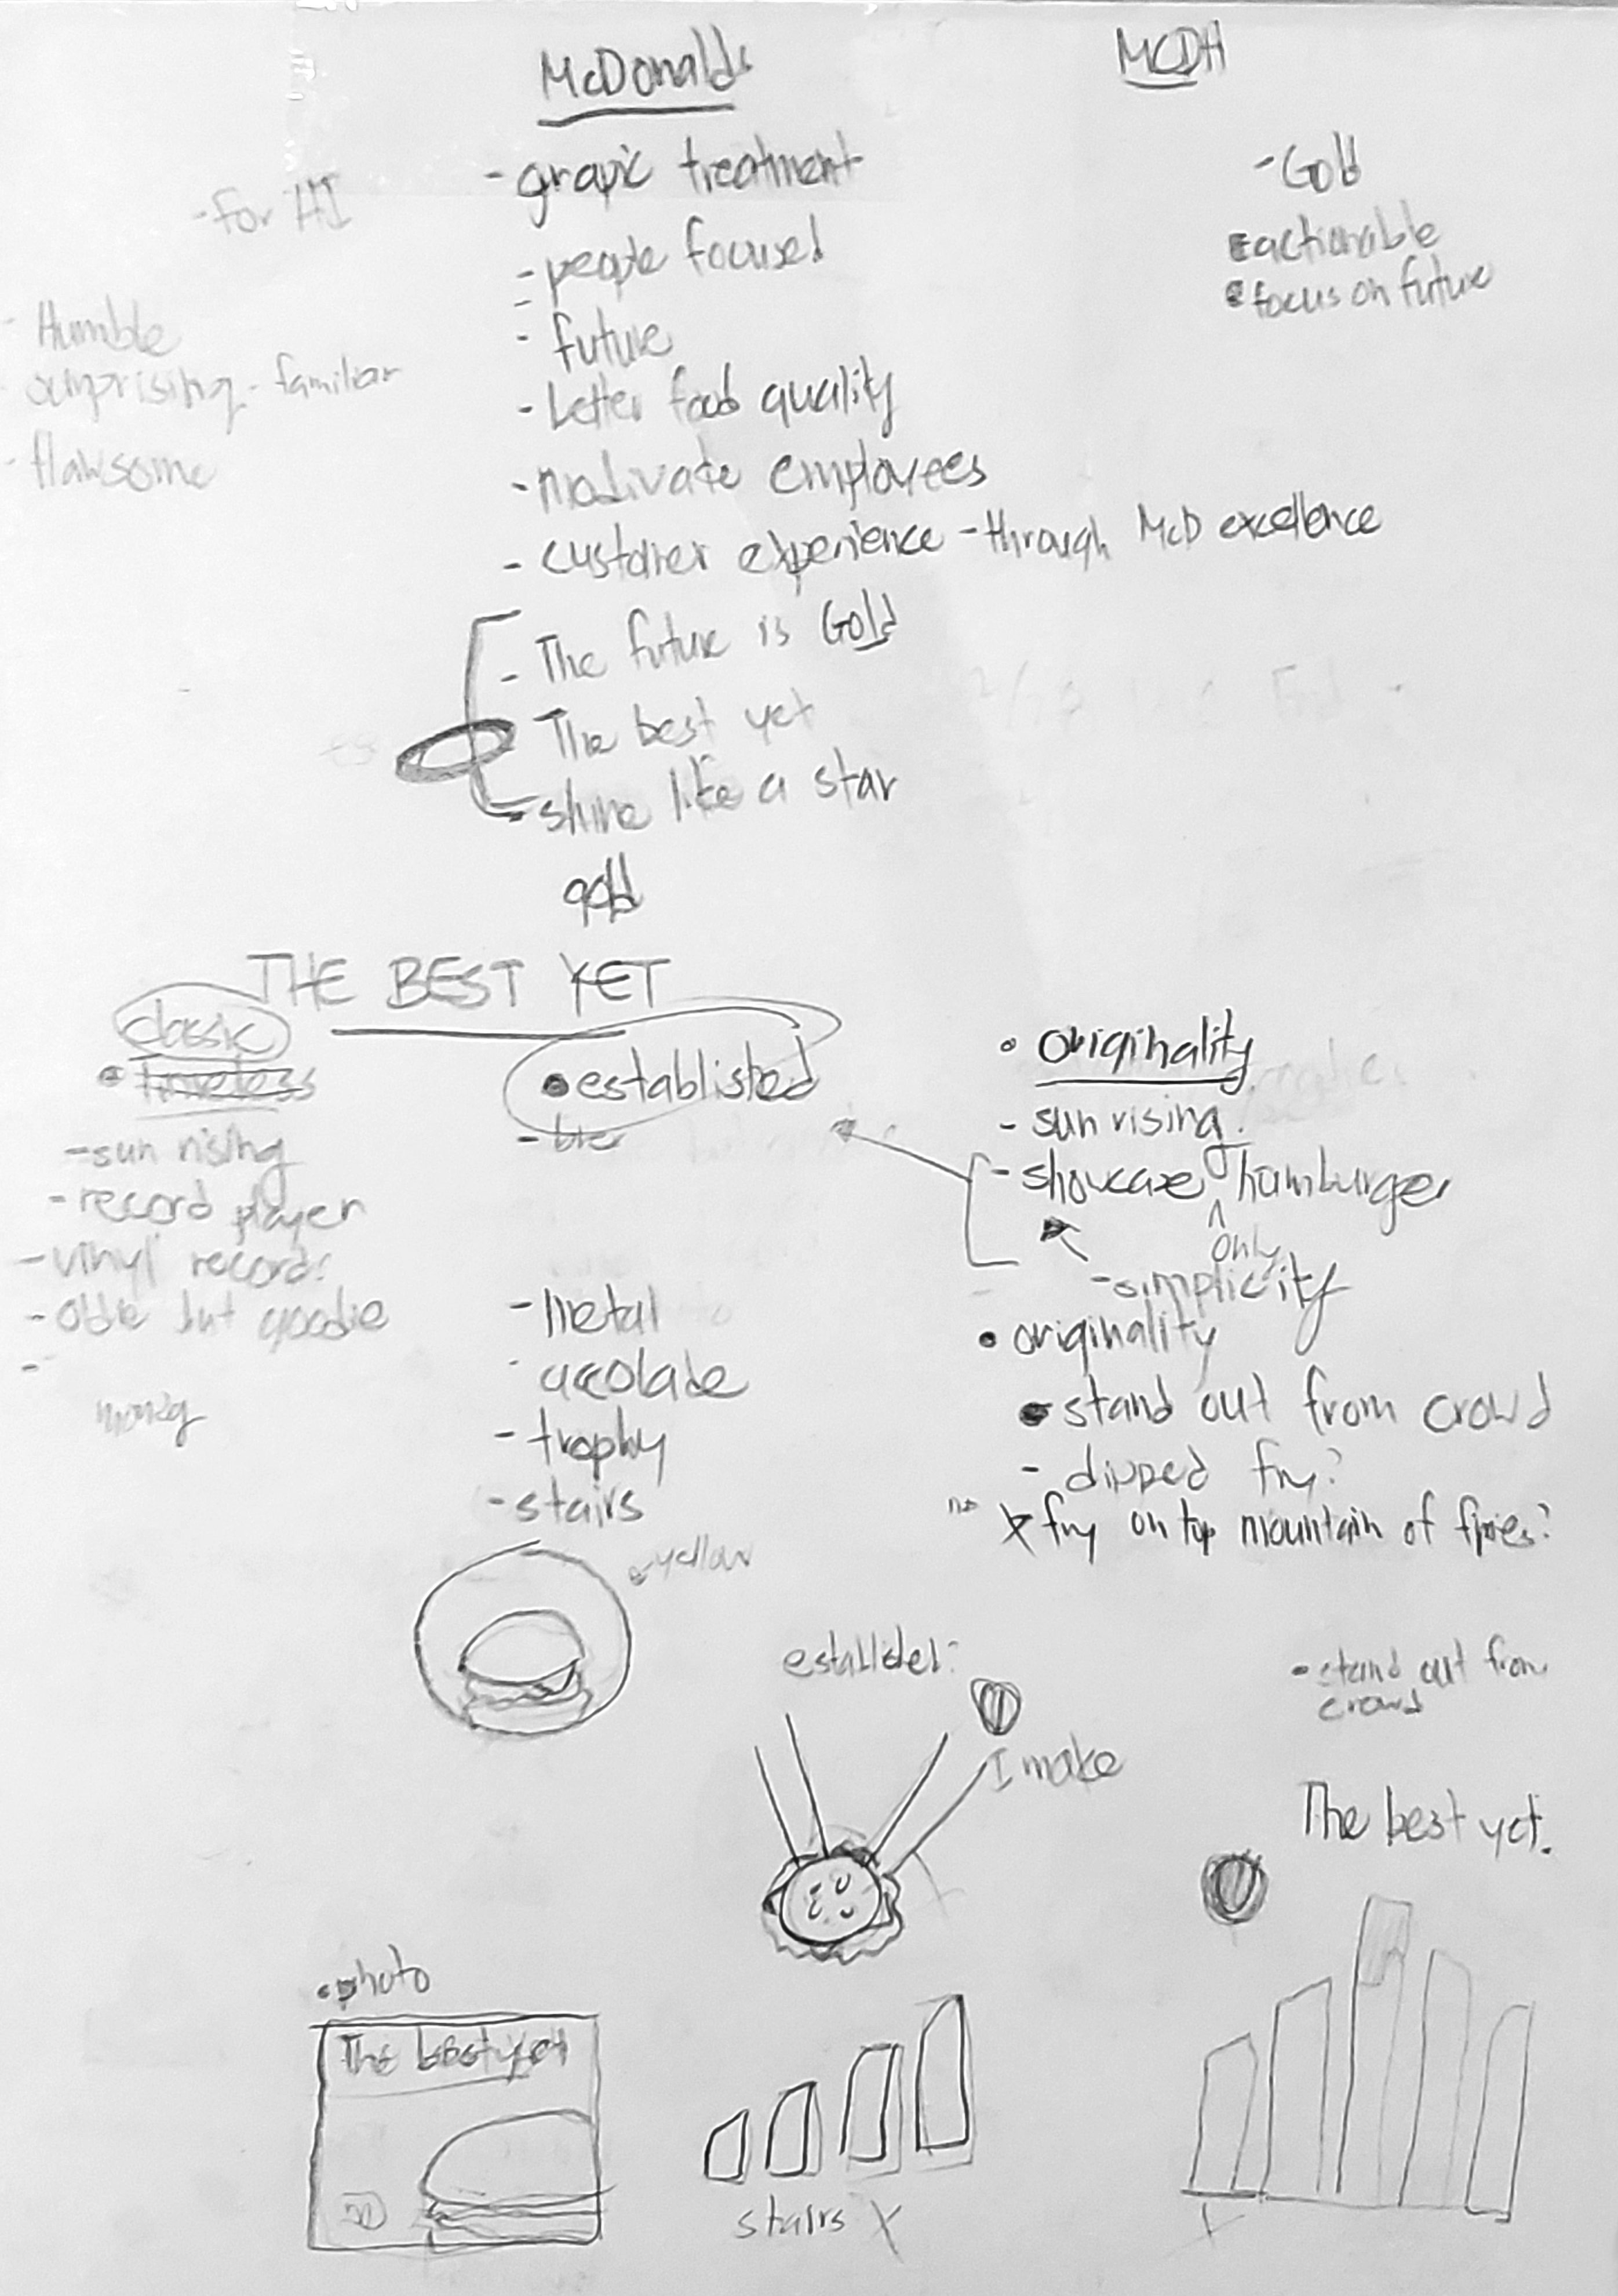 McDonalds
MCDH
- grapic treatment
- Gold
- for HI
- people focused
actionable
focus on future
- Humble
- future
surprising - familiar
- better food quality
- flawsome
- motivate employees
- customer experience - through McD excellence
- The future is Gold
- The best yet
- shine like a star
gold
THE BEST YET
classic
• timeless
• establisted
• originality
- sun rising
- sun rising
- record player
- showcase only hamburger
- vinyl records
- simplicity
- oldie but goodie
- metal
• originality
accolade
• stand out from crowd
- trophy
- dipped fry?
- stairs
no x fry on top mountain of fries?
yellow
• stand out from
crowd
I make
The best yet.
• photo
The best yet
stairs X